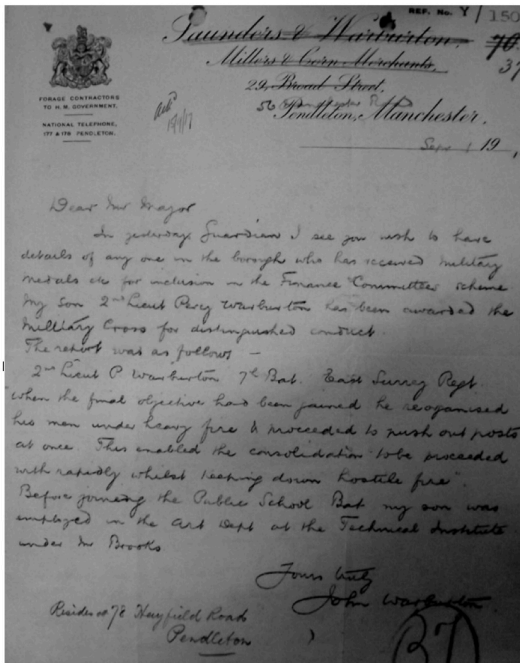 REF. No. Y/150
Saunders & Warburton.
70
37
Millers & Corn Merchants.
29, Broad Street,
56
Pendleton, Manchester,
FORAGE CONTRACTORS
TO H. M. GOVERNMENT.
NATIONAL TELEPHONE,
177 & 178 PENDLETON.
Sept 1 19
Dear Mr Mayor
In yesterdays Guardian I see you wish to have
details of any one in the borough who has received military
medals etc for inclusion in the Finance Committees scheme
My Son 2nd Lieut Percy Warburton has been awarded the
Military Cross for distinguished conduct.
The report was as follows —
2nd Lieut P Warburton 7th Bat. East Surrey Regt.
"When the final objective had been gained he reorganised
his men under heavy fire & proceeded to push out posts
at once. This enabled the consolidation to be proceeded
with rapidly whilst keeping down hostile fire".
Before joining the Public School Bat my son was
employed in the Art Dept at the Technical Institute
under Mr Brooks
Yours truly
John Warburton
Resides at 78 Heyfield Road
Pendleton